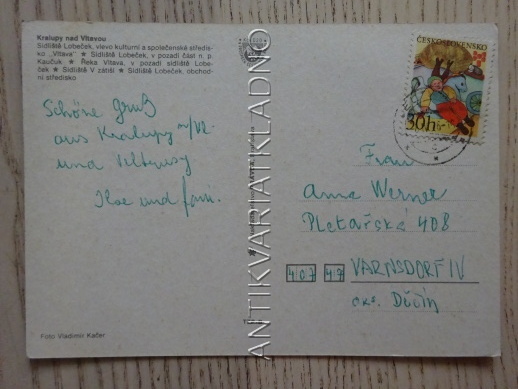 Kralupy nad Vltavou
Sídliště Lobeček, vlevo kulturní a společenské středis-
ko „Vltava" ★ Sídliště Lobeček, v pozadí část n. p.
Kaučuk ★ Řeka Vltava, v pozadí sídliště Lobe-
ček ★ Sídliště V zátiší ★ Sídliště Lobeček, obchod-
ní středisko
Schöne Gruß
aus Kralupy n/Vl.
und Veltrusy
Ilse und fam.
Foto Vladimír Kačer
ANTIKVARIAT KLADNO
ČESKOSLOVENSKO
30h
Frau
Anna Werner
Pletařská 408
407 47 VARNSDORF IV
okr. Děčín